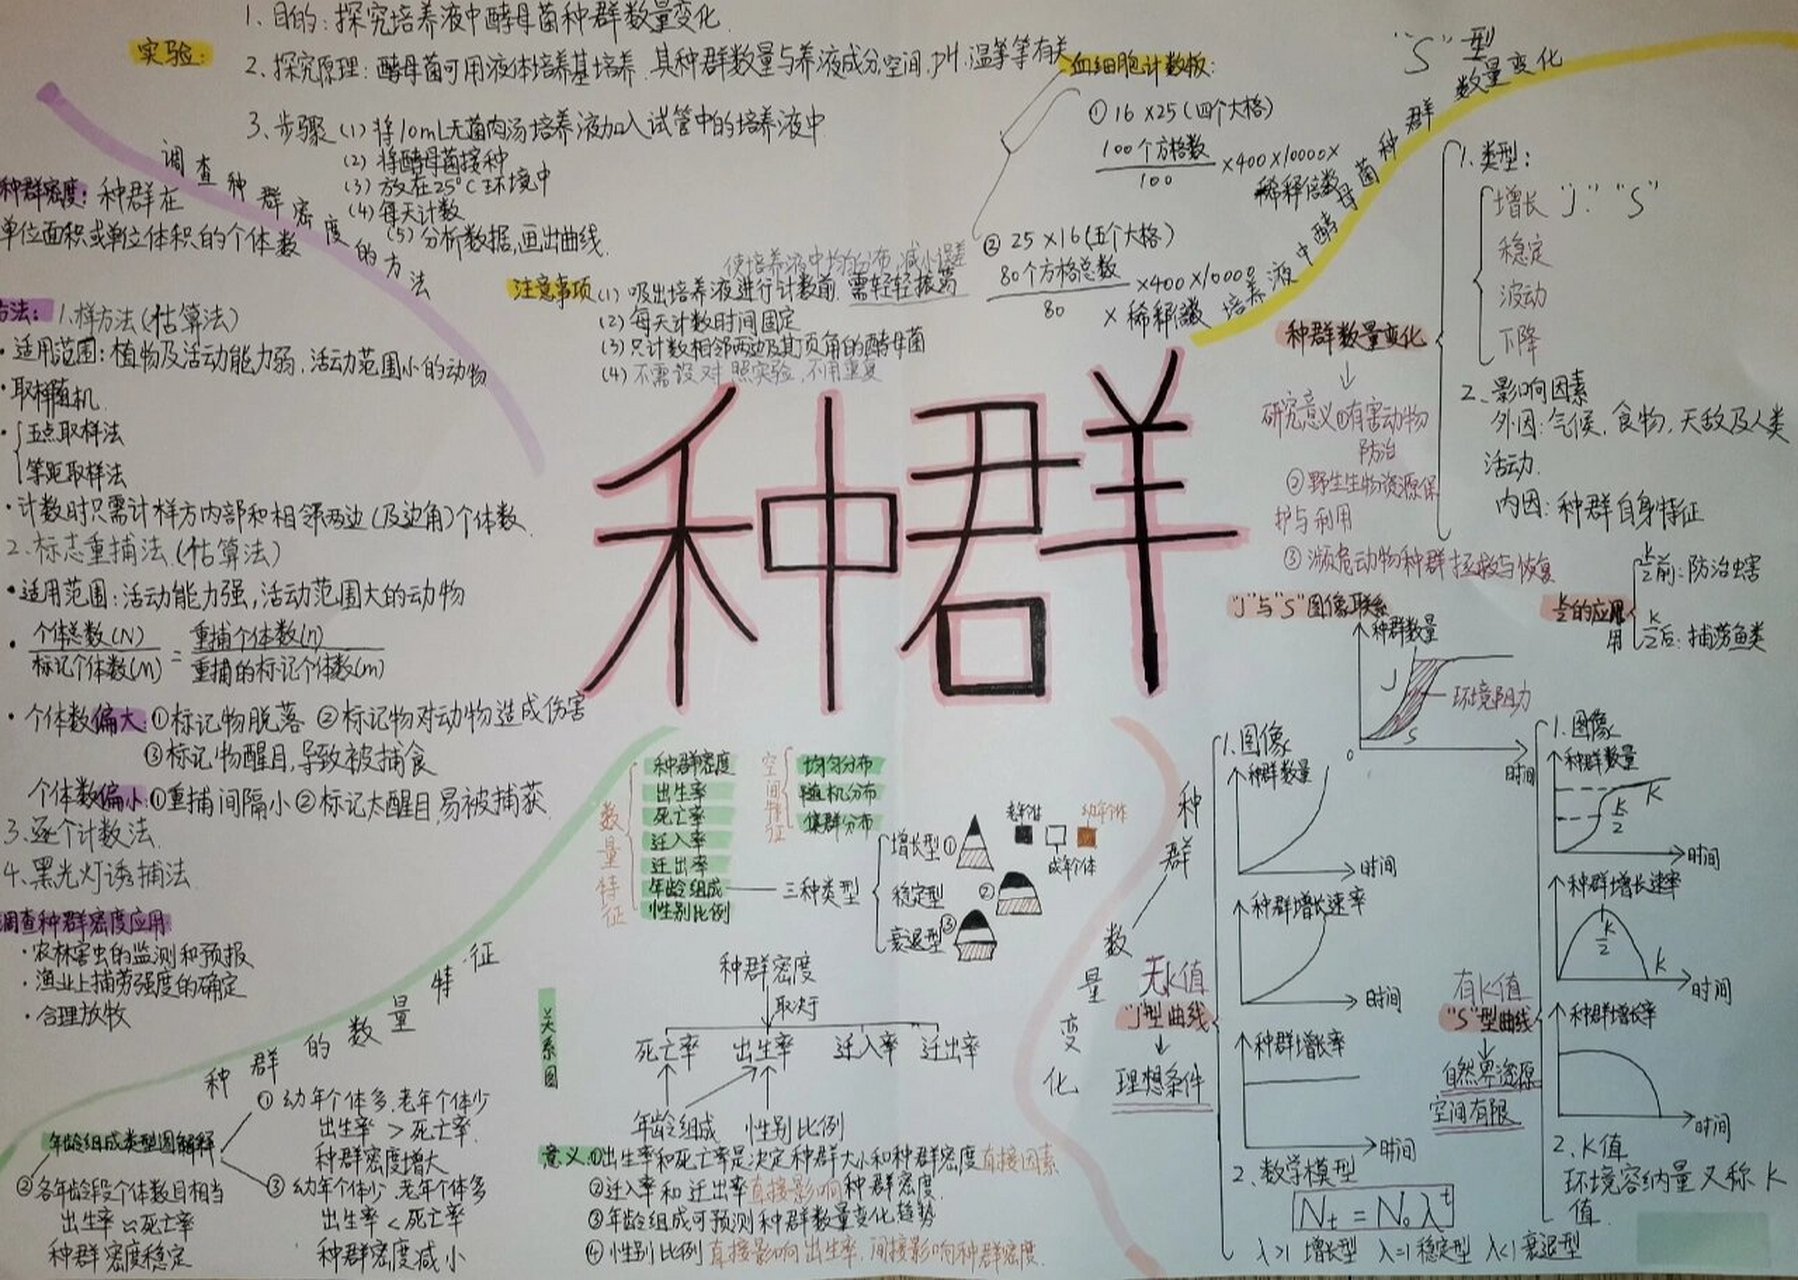 实验:
1. 目的: 探究培养液中酵母菌种群数量变化
2. 探究原理: 酵母菌可用液体培养基培养. 其种群数量与养液成分.空间.pH.温等等有关
3. 步骤 (1) 将10mL无菌肉汤培养液加入试管中的培养液中
(2) 将酵母菌接种
(3) 放在25°C环境中
(4) 每天计数
(5) 分析数据,画出曲线.
使培养液中均匀分布,减小误差
注意事项 (1) 吸出培养液进行计数前.需轻轻振荡
(2) 每天计数时间固定
(3) 只计数相邻两边及其顶角的酵母菌
(4) 不需设对照实验,不用重复
血细胞计数板:
① 16×25 (四个大格)
100个方格数
100
×400×10000×
稀释倍数
② 25×16 (五个大格)
80个方格总数
80
×400×10000
×稀释倍数
"S"型
数量变化
培养液中酵母菌种群
调查种群密度的方法
种群密度: 种群在
单位面积或单位体积的个体数
方法: 1.样方法(估算法)
·适用范围: 植物及活动能力弱,活动范围小的动物
·取样随机
·五点取样法
等距取样法
·计数时只需计样方内部和相邻两边(及边角)个体数
2.标志重捕法(估算法)
·适用范围:活动能力强,活动范围大的动物
· 个体总数(N) = 重捕个体数(n)
标记个体数(M) 重捕的标记个体数(m)
·个体数偏大:①标记物脱落 ②标记物对动物造成伤害
③标记物醒目,导致被捕食
个体数偏小:①重捕间隔小②标记太醒目,易被捕获
3.逐个计数法
4.黑光灯诱捕法
调查种群密度应用
·农林害虫的监测和预报
·渔业上捕捞强度的确定
·合理放牧
种群
种群数量变化
研究意义①有害动物
防治
②野生生物资源保
护与利用
③濒危动物种群拯救与恢复
1.类型:
增长"J" "S"
稳定
波动
下降
2、影响因素
外因:气候、食物,天敌及人类
活动.
内因: 种群自身特征
"J"与"S"图像联系
种群数量
J
S
环境阻力
0
时间
K/2的应用
用
K/2前:防治虫害
K/2后:捕荡鱼类
种群的数量特征
数量特征
种群密度
出生率
死亡率
迁入率
迁出率
年龄组成
性别比例
空间特征
均匀分布
随机分布
集群分布
三种类型
增长型①
稳定型 ②
衰退型③
老年个体
成年个体
幼年个体
关系图
种群密度
取决于
死亡率 出生率 迁入率 迁出率
年龄组成 性别比例
意义.①出生率和死亡率是决定种群大小和种群密度直接因素
②迁入率和迁出率直接影响种群密度.
③年龄组成可预测种群数量变化趋势
④性别比例直接影响出生率.间接影响种群密度.
年龄组成类型图解释
① 幼年个体多.老年个体少
出生率 > 死亡率.
种群密度增大
②各年龄段个体数目相当
出生率≈死亡率
种群密度稳定
③ 幼年个体少.老年个体多
出生率<死亡率
种群密度减小
种群数量变化
无K值
"J"型曲线
理想条件
1.图像
种群数量
时间
种群增长速率
时间
种群增长率
时间
2、数学模型
Nt = N₀λᵗ
λ>1 增长型 λ=1稳定型 λ<1衰退型
有K值
"S"型曲线
自然界资源
空间有限
1.图像
种群数量
K
K/2
时间
种群增长速率
K/2
K
时间
种群增长率
时间
2、K值
环境容纳量又称K
值